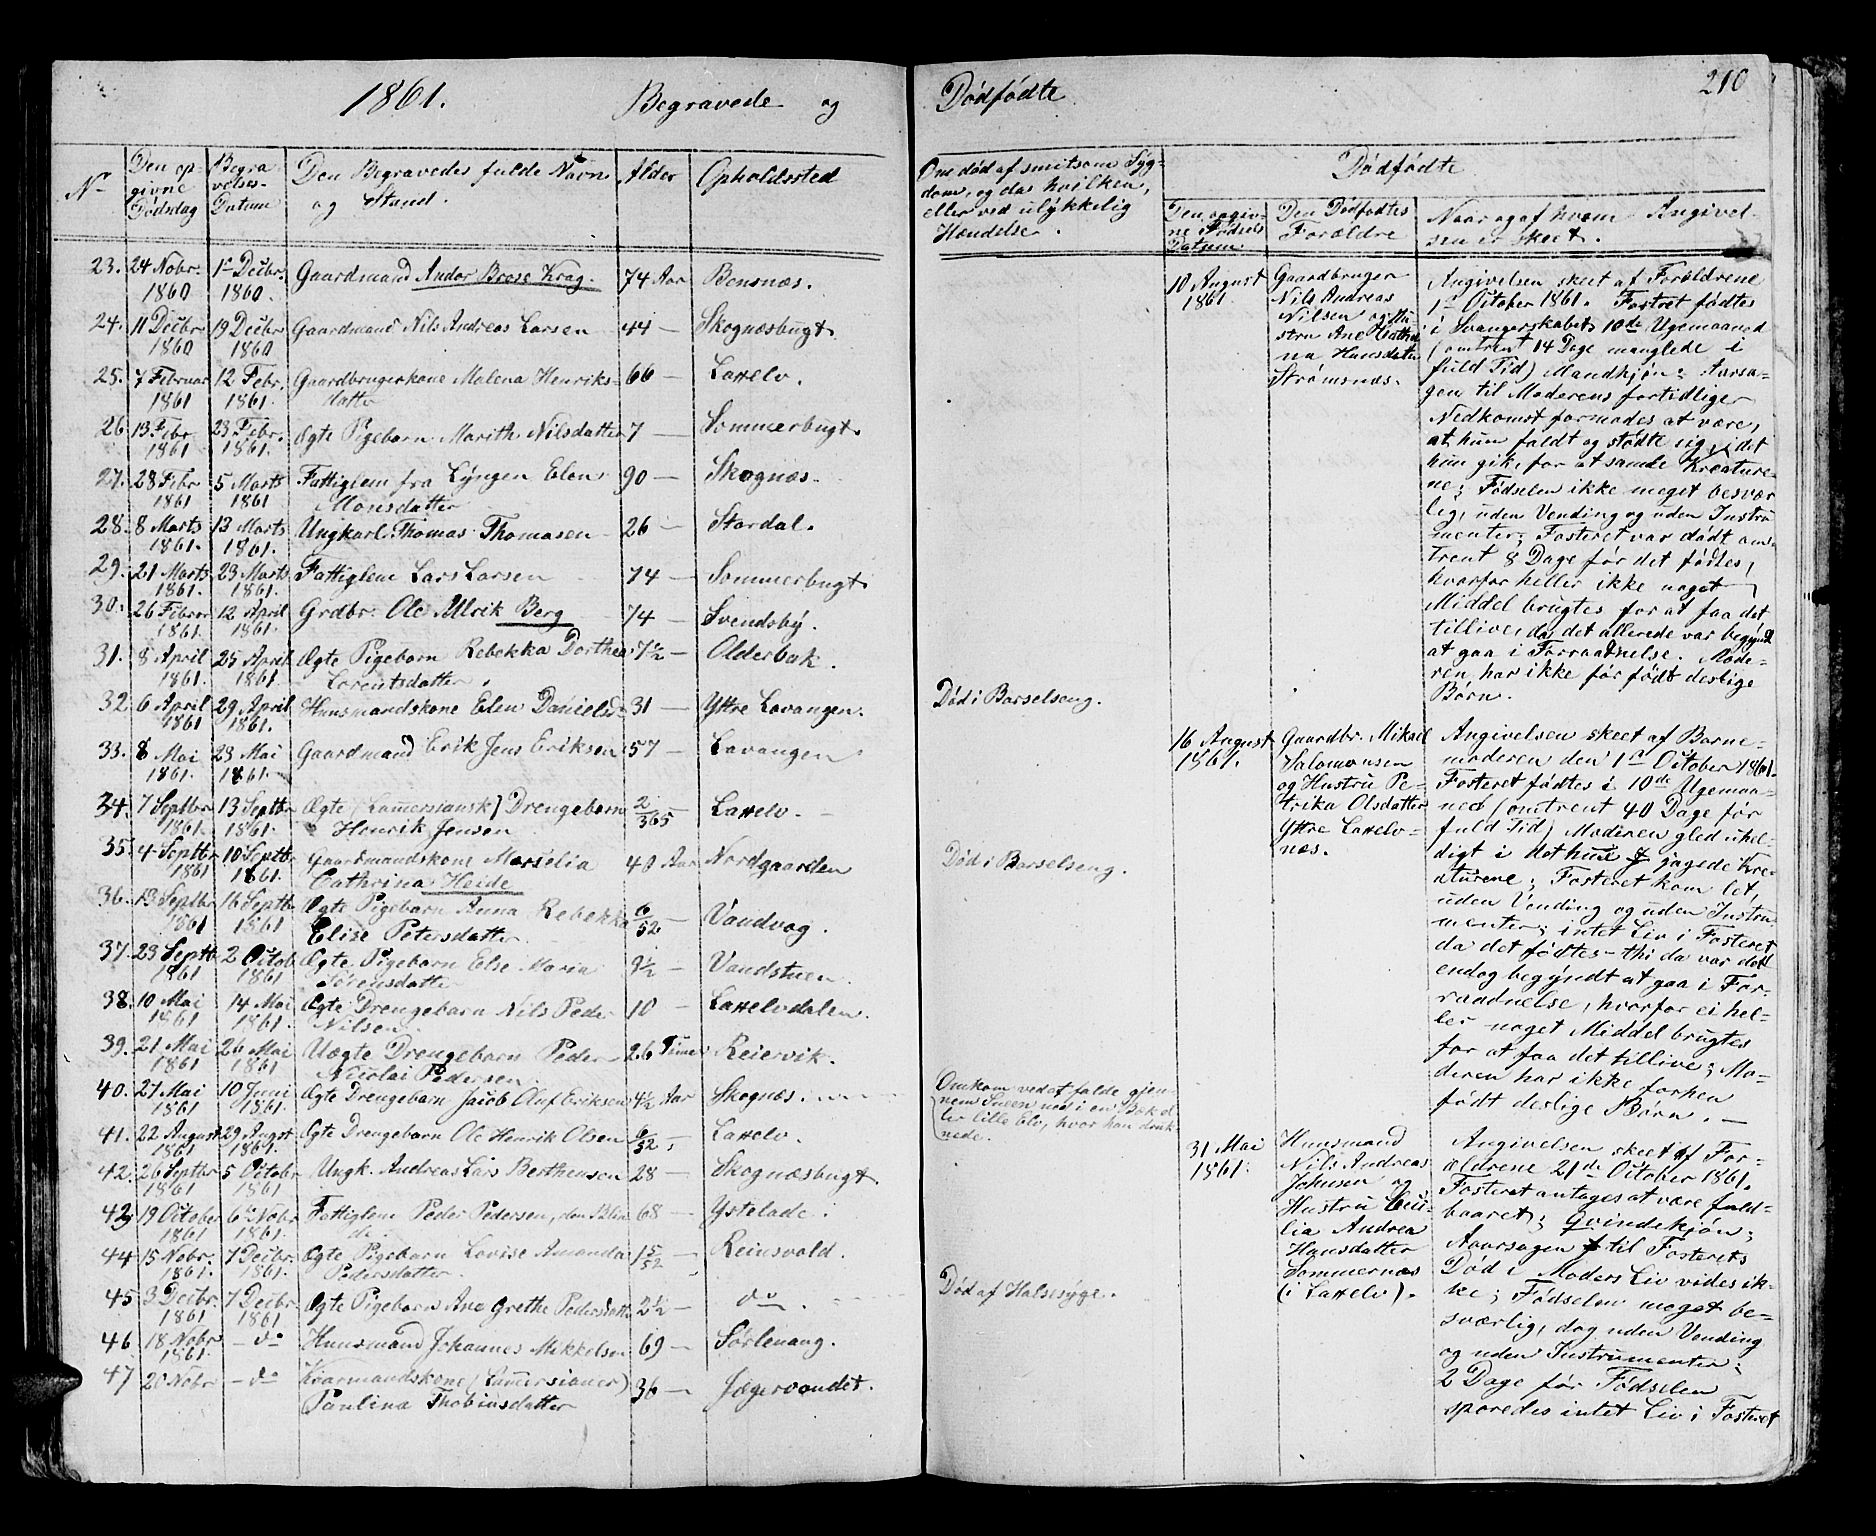 1861. Begravede og Dødfødte 210
No
Den opgivne Dødsdag
Begravelses-Datum
Den Begravedes fulde Navn og Stand.
Alder
Opholdssted
Om død af smitsom Sygdom, og da hvilken, eller ved ulykkelig Hændelse.
Dødfødte
Den opgivne Fødsels Datum
Den Dødfødtes Forældre
Naar og af hvem Angivelsen er skeet.
23. 24 Nobr. 1860 1ste Decbr. 1860. Gaardmand Andor Brose Krag. 74 Aar Bensnæs.
24. 11 Decbr 1860 19 Decbr 1860 Gaardmand Nils Andreas Larsen 44 — Skognæsbugt.
25. 7 Februar 1861 12 Febr. 1861. Gaardbrugerkone Malena Henriksdatter 66 — Laxelv.
26 13 Febr 1861 23 Febr. 1861. Ægte Pigebarn Marith Nilsdatter 7 — Sommerbugt.
27. 28 Febr 1861 5 Marts 1861 Fattiglem fra Lyngen Elen Monsdatter 90 — Skognæs.
28. 8 Marts 1861. 13 Marts 1861. Ungkarl Thomas Thomasen 26 — Stordal.
29. 21 Marts 1861. 23 Marts 1861. Fattiglem Lars Larsen 74 — Sommerbugt.
30. 26 Febrar 1861. 12 April 1861. Grdbr. Ole Ulrik Berg 74 — Svendsby.
31. 8 April 1861. 25 April 1861. Ægte Pigebarn Rebekka Dorthea Lorentsdatter. 7½ — Olderbak.
32. 6 April 1861 29 April 1861. Huusmandskone Elen Danielsd. 31 — Yttre Lavangen. Død i Barselseng.
33. 8 Mai 1861. 23 Mai 1861. Gaardmand Erik Jens Eriksen 57 — Lavangen
34. 7 Septbr 1861. 13 Septbr 1861. Ægte (Lammersiansk) Drengebarn Henrik Jensen 2/365 Laxelv.
35. 4 Septbr 1861 10 Septbr 1861. Gaardmandskone Marselia Cathrina Heide 40 Aar Nordgaarden Død i Barselseng.
36. 13 Septbr 1861 16 Septbr 1861 Ægte Pigebarn Anna Rebekka Elise Petersdatter 6/52 — Vandvog.
37. 23 Septbr 1861 2 Octob 1861 Ægte Pigebarn Else Maria Sørensdatter 9½ — Vandstuen.
38. 10 Mai 1861 14 Mai 1861. Ægte Drengebarn Nils Peder Nilsen 10 — Laxelvdalen.
39. 21 Mai 1861 26 Mai 1861 Uægte Drengebarn Peder Nicolai Pedersen 26 Timer Reiervik.
40. 27 Mai 1861 10 Juni 1861. Ægte Drengebarn Jacob Oluf Eriksen 4½ Aar Skognæs. Omkom ved at falde gjennem Sneen ned i en Bæk eller lille Elv, hvor han druknede.
41. 22 August 1861 29 Augst 1861. Ægte Drengebarn Ole Henrik Olsen 6/52 — Laxelv.
42. 26 Septbr 1861 5 Octobr 1861 Ungk. Andreas Lars Berthensen 28 — Skognæsbugt.
43 19 October 1861 6te Nobr 1861. Fattiglem Peder Pedersen, den Blinde. 68 — Ystelade.
44 15 Nobr. 1861. 7 Decbr. 1861. Ægte Pigebarn Lovise Amanda Pedersdatter. 1 5/52 — Reinsvold.
45. 3 Decbr. 1861 7 Decbr. 1861 Ægte Pigebarn Ane Grethe Pedersdatter 2½ — do. Død af Halssyge.
46 18 Nobr 1861. — do Huusmand Johannes Mikkelsen 69 — Sørlenang.
47 20 Nobr — do Kvarmandskone (Lammersianer) Paulina Thobiasdatter 36 — Jægervandet.
10 August 1861.
Gaardbruger
Nils Andreas
Nilsen og Hu-
stru Ane Cathri-
na Hansdatter
Strømsnæs.
Angivelsen skeet af Forældrene
1ste October 1861. Fostret fødtes
i Svangerskabets 10de Ugemaaned
(omtrent 14 Dage manglede i
fuld Tid) Mandkjøn; Aarsa-
gen til Moderens fortidlige
Nedkomst formodes at være,
at hun faldt og stødte sig, idet
hun gik, for at samle Kreature-
ne; Fødselen ikke meget besvær
lig, uden Vending og uden Instru
menter; Fosteret var dødt om-
trent 8 Dage før det fødtes,
hvorfor heller ikke noget
Middel brugtes for at faa det
tillive, da det allerede var begyndt
at gaa i Forraadnelse. Mode-
ren, har ikke før født deslige
Børn.
16 August 1861.
Gaardbr. Mikael
Salomonsen
og Hustru Pe-
trika Olsdatter
Yttre Laxelv-
næs.
Angivelsen skeet af Barne-
moderen den 1ste October 1861.
Fosteret fødtes i 10de Ugemaa-
ned (omtrent 40 Dage før
fuld Tid) Moderen gled uhel-
digt i det hun jagede Kre-
aturene; Fosteret kom let,
uden Vending og uden Instru
menter; intet Liv i Fosteret
da det fødtes - thi da var det
endog begyndt at gaa i For-
raadnelse, hvorfor ei hel-
ler noget Middel brugtes
for at faa det tillive; Mo-
deren har ikke forhen
født deslige Børn. —
31 Mai 1861.
Huusmand
Nils Andreas
Johnsen og
Hustru Ceci-
lia Andrea
Hansdatter
Sommernæs
(i Laxelv).
Angivelsen skeet af For-
ældrene 21de October 1861.
Fosteret antages at være fuld-
baaret; Qvindekjøn;
Aarsagen til Fosterets
Død i Moders Liv vides ik-
ke; Fødselen meget be-
sværlig, dog uden Vending
og uden Instrumenter;
2 Dage før Fødselen
sporedes intet Liv i Fosteret